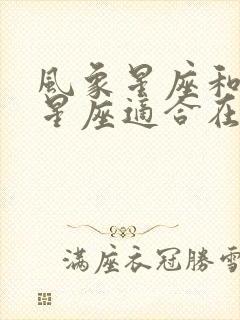 風象星座和
星座適合在
滿座衣冠勝雪